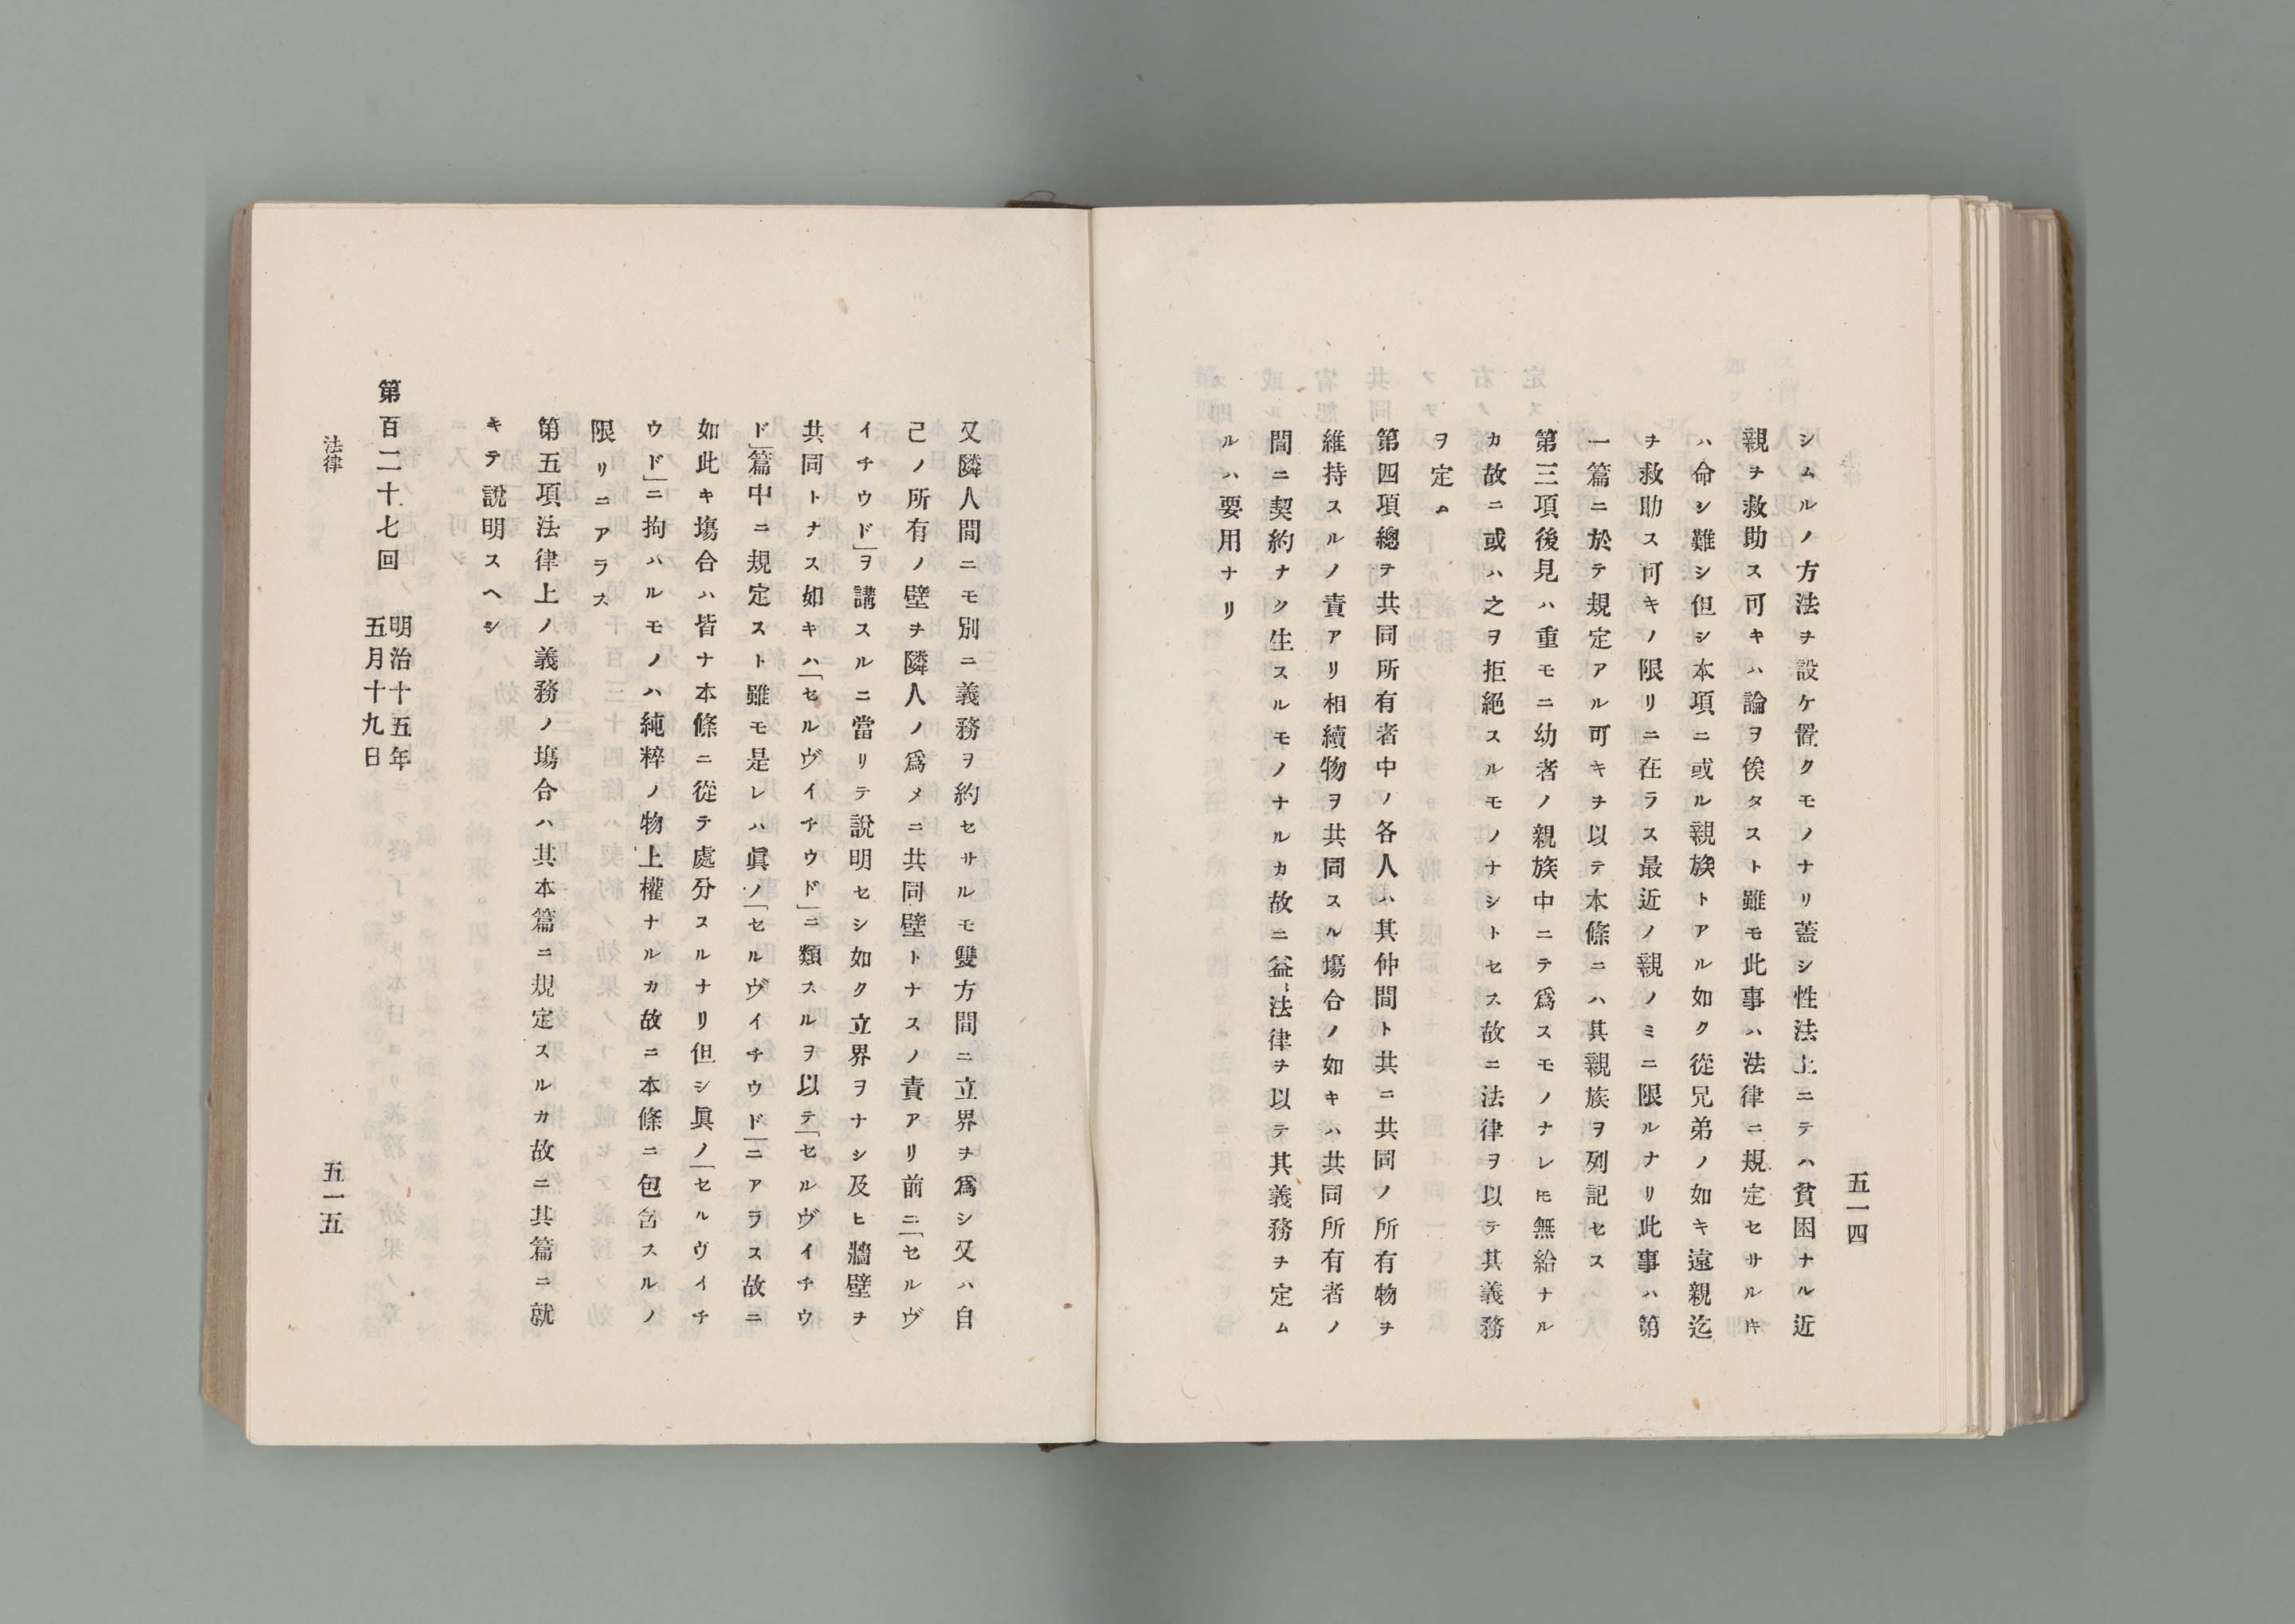 五一四
シムルノ方法ヲ設ケ置クモノナリ蓋シ性法上ニテハ貧困ナル近
親ヲ救助ス可キハ論ヲ俟タスト雖モ此事ハ法律ニ規定セサルトキ
ハ命シ難シ但シ本項ニ或ル親族トアル如ク從兄弟ノ如キ遠親迄
ヲ救助ス可キノ限リニ在ラス最近ノ親ノミニ限ルナリ此事ハ第
一篇ニ於テ規定アル可キヲ以テ本條ニハ其親族ヲ列記セス
第三項後見ハ重モニ幼者ノ親族中ニテ爲スモノナレトモ無給ナル
カ故ニ或ハ之ヲ拒絕スルモノナシトセス故ニ法律ヲ以テ其義務
ヲ定ム
第四項總ヲ共同所有者中ノ各人ハ其仲間ト共ニ共同ノ所有物ヲ
維持スルノ責アリ相續物ヲ共同スル塲合ノ如キハ共同所有者ノ
間ニ契約ナク生スルモノナルカ故ニ益法律ヲ以テ其義務ヲ定ム
ルハ要用ナリ
又隣人間ニモ別ニ義務ヲ約セサルモ雙方間ニ立界ヲ爲シ又ハ自
己ノ所有ノ壁ヲ隣人ノ爲メニ共同壁トナスノ責アリ前ニ「セルヴ
イチウド」ヲ講スルニ當リテ說明セシ如ク立界ヲナシ及ヒ牆壁ヲ
共同トナス如キハ「セルヴイチウド」ニ類スルヲ以テ「セルヴイチウ
ド」篇中ニ規定スト雖モ是レハ眞ノ「セルヴイチウド」ニアラス故ニ
如此キ塲合ハ皆ナ本條ニ從テ處分スルナリ但シ眞ノ「セルヴイチ
ウド」ニ拘ハルモノハ純粹ノ物上權ナルカ故ニ本條ニ包含スルノ
限リニアラス
第五項法律上ノ義務ノ塲合ハ其本篇ニ規定スルカ故ニ其篇ニ就
キテ說明スヘシ
第百二十七回　明治十五年
五月十九日
法律
五一五